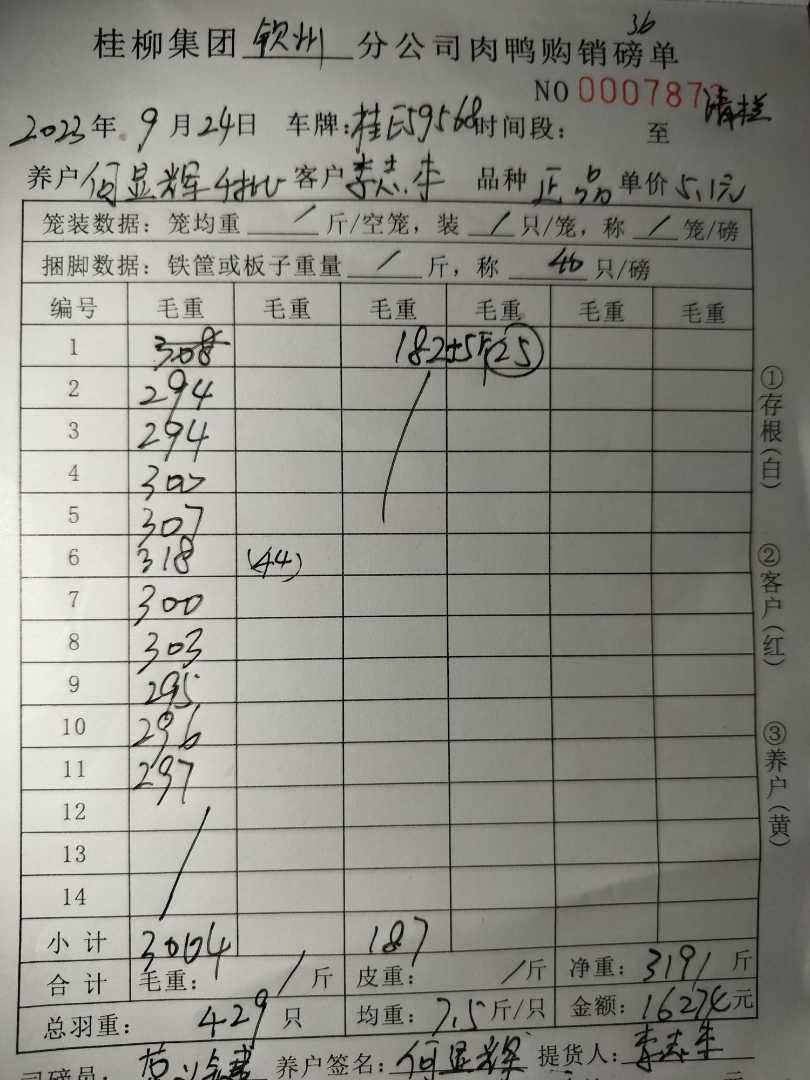 36
桂柳集团 钦州 分公司肉鸭购销磅单
NO 000787
清栏
2023年 9月24日 车牌:桂E59568 时间段: 至
养户 何显辉 客户 李志 品种 正品 单价 5.1元
笼装数据: 笼均重 / 斤/空笼, 装 / 只/笼, 称 / 笼/磅
捆脚数据: 铁筐或板子重量 / 斤, 称 40 只/磅
编号 毛重 毛重 毛重 毛重 毛重 毛重
1 308 182+5斤 25
2 294
3 294
4 300
5 307
6 318 (44)
7 300
8 303
9 295
10 296
11 297
12
13
14
小计 3004 187
合计 毛重: / 斤 皮重: / 斤 净重: 3191 斤
总羽重: 429 只 均重: 7.5 斤/只 金额: 16274 元
司磅员: 养户签名: 何显辉 提货人: 李志
元
①存根(白)
②客户(红)
③养户(黄)